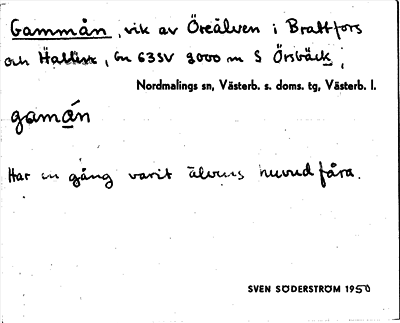 Gammån, vik av Öreälven i Brattfors
och Hallisk, Gn 63SV 3000 m S Örsbäck,
Nordmalings sn, Västerb. s. doms. tg, Västerb. l.
gamån
Har en gång varit älvens huvudfåra.
SVEN SÖDERSTRÖM 1950